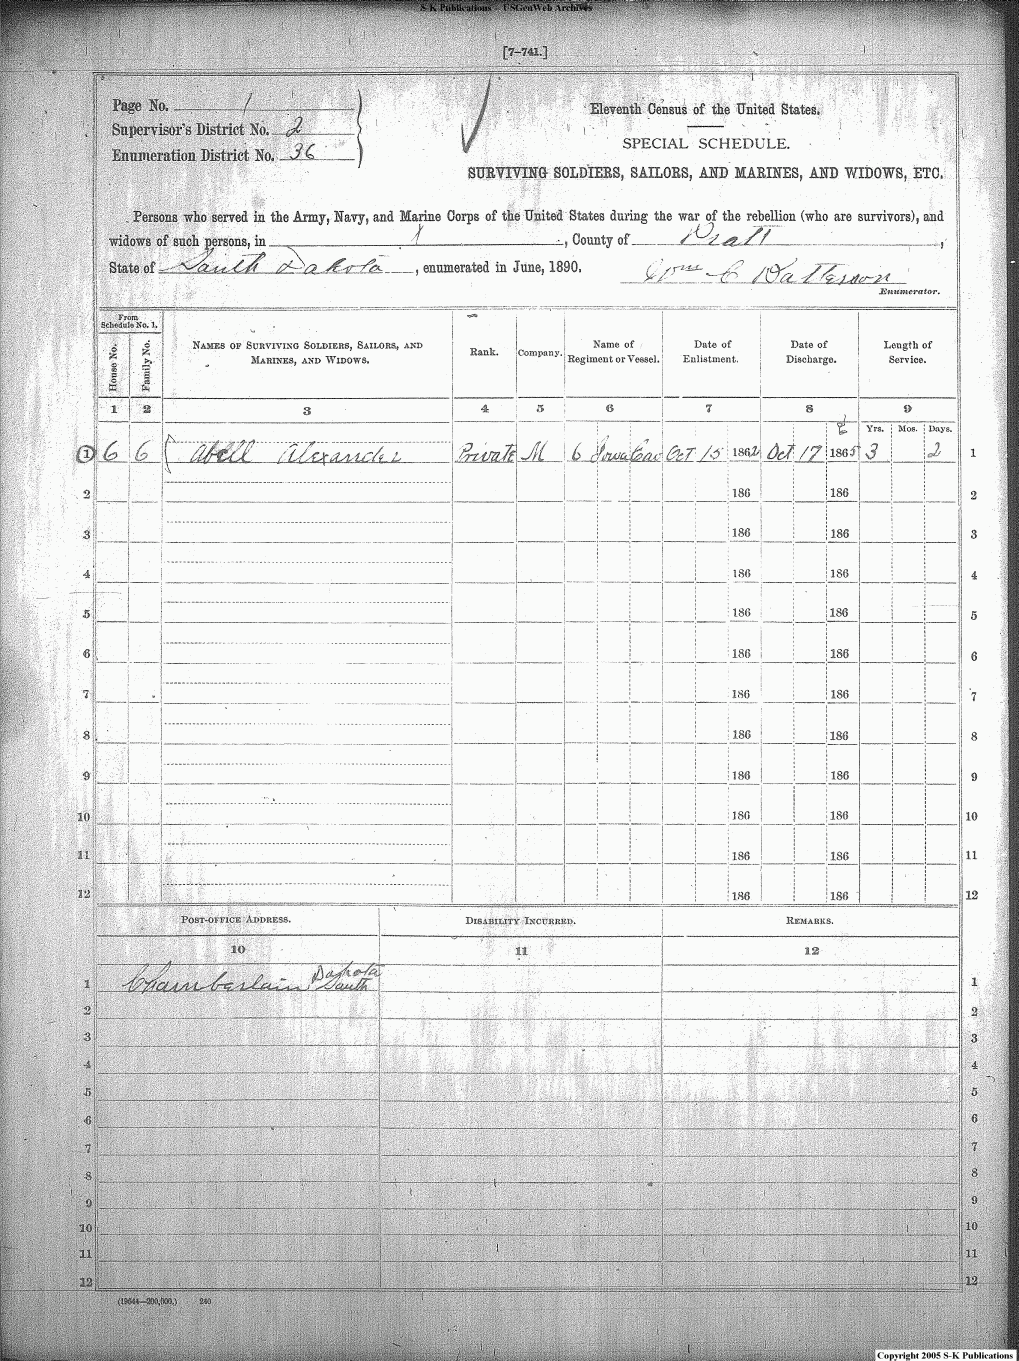 S-K Publications - USGenWeb Archives
[7-741.]
Page No. 1
Supervisor's District No. 2
Enumeration District No. 36
Eleventh Census of the United States.
SPECIAL SCHEDULE.
SURVIVING SOLDIERS, SAILORS, AND MARINES, AND WIDOWS, ETC.
Persons who served in the Army, Navy, and Marine Corps of the United States during the war of the rebellion (who are survivors), and
widows of such persons, in , County of Pratt ,
State of South Dakota , enumerated in June, 1890.
Wm C Patterson
Enumerator.
From Schedule No. 1.
House No. Family No. NAMES OF SURVIVING SOLDIERS, SAILORS, AND MARINES, AND WIDOWS. Rank. Company. Name of Regiment or Vessel. Date of Enlistment. Date of Discharge. Length of Service.
1 2 3 4 5 6 7 8 9
Yrs. Mos. Days.
1 6 6 Abell Alexander Private M 6 Iowa Cav Oct 15 1862 Oct 17 1865 3 2 1
2 186 186 2
3 186 186 3
4 186 186 4
5 186 186 5
6 186 186 6
7 186 186 7
8 186 186 8
9 186 186 9
10 186 186 10
11 186 186 11
12 186 186 12
POST-OFFICE ADDRESS. DISABILITY INCURRED. REMARKS.
10 11 12
1 Chamberlain South Dakota 1
2 2
3 3
4 4
5 5
6 6
7 7
8 8
9 9
10 10
11 11
12 12
(19644—200,000.) 240
Copyright 2005 S-K Publications